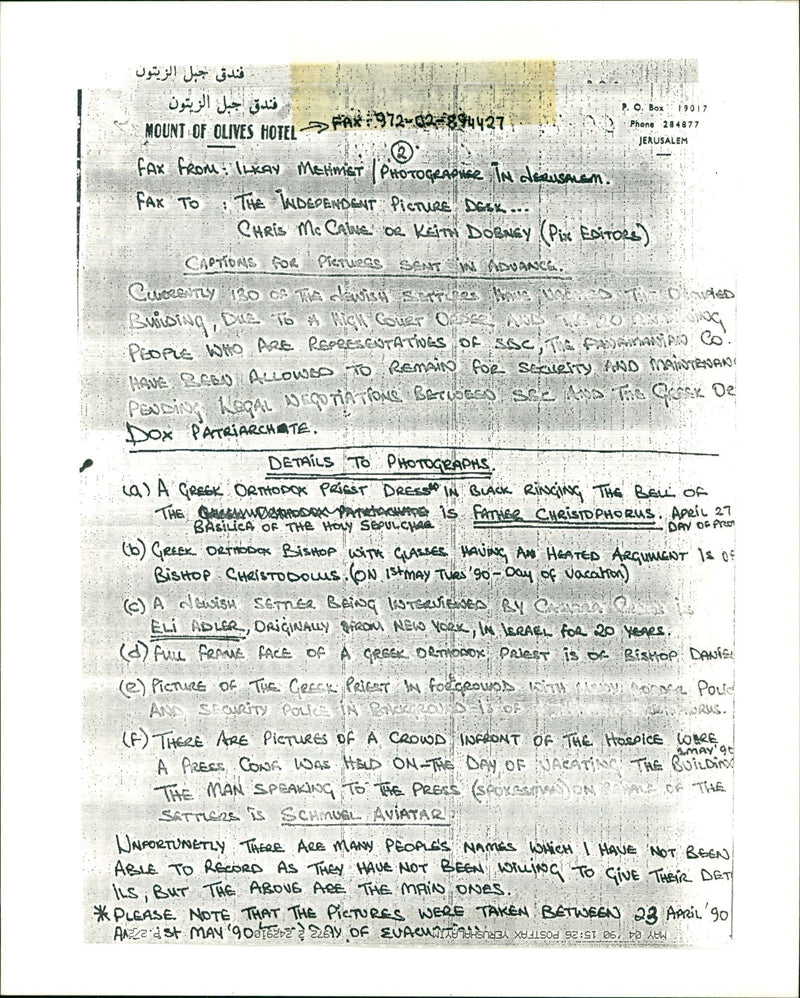 فندق جبل الزيتون
فندق جبل الزيتون
MOUNT OF OLIVES HOTEL → FAX: 972-02-894427
P. O. Box 19017
Phone 284877
JERUSALEM
2
FAX FROM: ILKAY MEHMET / PHOTOGRAPHER IN JERUSALEM.
FAX TO : THE INDEPENDENT PICTURE DESK...
CHRIS McCAINE OR KEITH DOBNEY (PIX EDITORS)
CAPTIONS FOR PICTURES SENT IN ADVANCE.
CURRENTLY 130 OF THE JEWISH SETTLERS HAVE VACATED THE OCCUPIED
BUILDING, DUE TO A HIGH COURT ORDER AND THE 20 REMAINING
PEOPLE WHO ARE REPRESENTATIVES OF SBC, THE PANAMANIAN CO.
HAVE BEEN ALLOWED TO REMAIN FOR SECURITY AND MAINTENAN
PENDING LEGAL NEGOTIATIONS BETWEEN SBC AND THE GREEK OR
DOX PATRIARCHATE.
DETAILS TO PHOTOGRAPHS.
(a) A GREEK ORTHODOX PRIEST DRESS IN BLACK RINGING THE BELL OF
THE IS FATHER CHRISTOPHORUS. APRIL 27
BASILICA OF THE HOLY SEPULCHAR DAY OF PRO
(b) GREEK ORTHODOX BISHOP WITH GLASSES HAVING AN HEATED ARGUMENT IS OF
BISHOP CHRISTODOLUS. (ON 1st MAY TUES '90 - DAY OF VACATION)
(c) A JEWISH SETTLER BEING INTERVIEWED BY CAMERA CREWS IS
ELI ADLER, ORIGINALLY FROM NEW YORK, IN ISRAEL FOR 20 YEARS.
(d) FULL FRAME FACE OF A GREEK ORTHODOX PRIEST IS OF BISHOP DANIEL
(e) PICTURE OF THE GREEK PRIEST IN FORGROUND WITH BORDER POLIC
AND SECURITY POLICE IN BACKGROUND IS OF
(F) THERE ARE PICTURES OF A CROWD INFRONT OF THE HOSPICE WERE
A PRESS CONF WAS HELD ON THE DAY OF VACATING THE BUILDING
MAY '90
THE MAN SPEAKING TO THE PRESS (SPOKESMAN) ON BEHALF OF THE
SETTLERS IS SCHMUEL AVIATAR.
UNFORTUNETLY THERE ARE MANY PEOPLES NAMES WHICH I HAVE NOT BEEN
ABLE TO RECORD AS THEY HAVE NOT BEEN WILLING TO GIVE THEIR DET
ILS, BUT THE ABOVE ARE THE MAIN ONES.
* PLEASE NOTE THAT THE PICTURES WERE TAKEN BETWEEN 23 APRIL '90
AND 1st MAY '90 DAY OF EVACUATION
MAY 04 '90 15:26 POSTFAX YERUSHALAYIM 972 2 242910 P.2